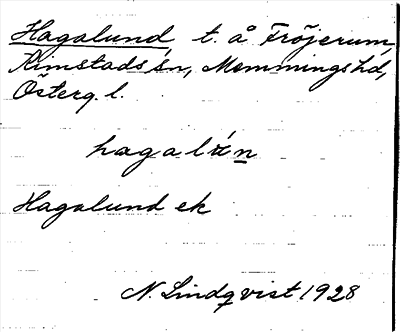 Hagalund t. å Fröjerum,
Kimstads sn, Memmings hd,
Österg. l.
Hagalund ek
N. Lindqvist 1928